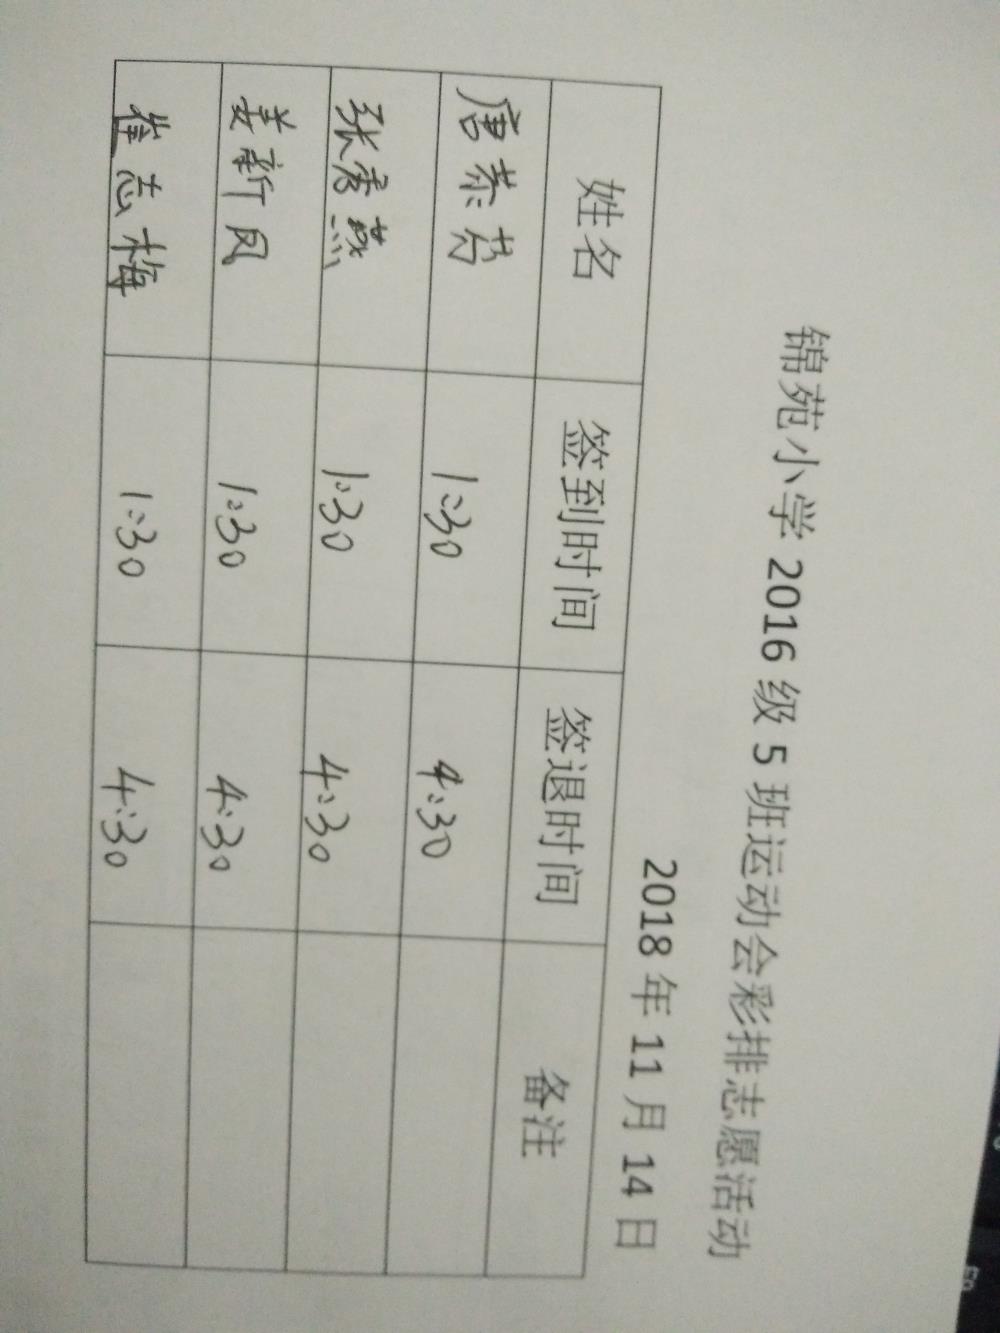 锦苑小学 2016 级 5 班运动会彩排志愿活动
2018 年 11 月 14 日
姓名 签到时间 签退时间 备注
唐恭芳 1:30 4:30
张秀燕 1:30 4:30
姜新凤 1:30 4:30
崔志梅 1:30 4:30